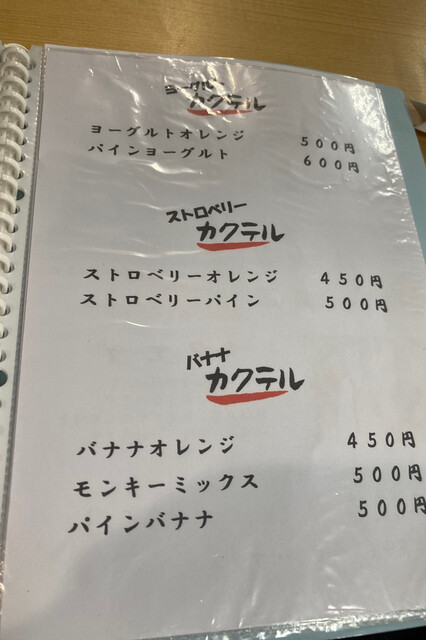 ヨーグルト
カクテル
ヨーグルトオレンジ 500円
パインヨーグルト 600円
ストロベリー
カクテル
ストロベリーオレンジ 450円
ストロベリーパイン 500円
バナナ
カクテル
バナナオレンジ 450円
モンキーミックス 500円
パインバナナ 500円